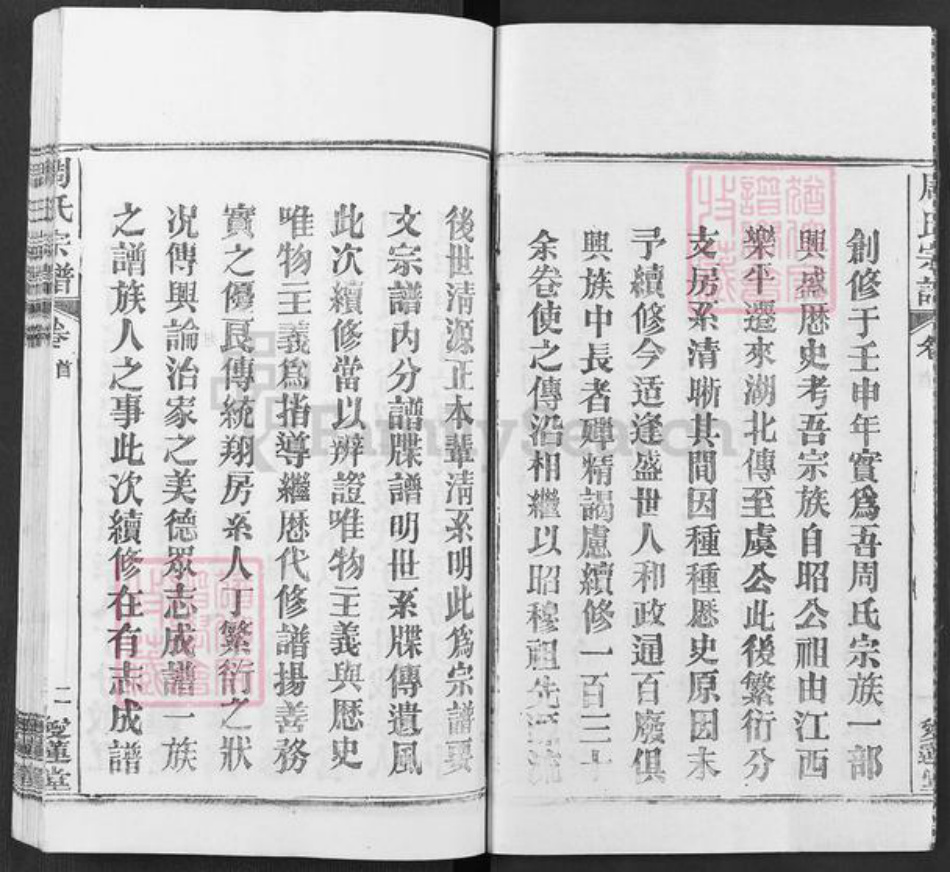 創修于壬申年實爲吾周氏宗族一部
興盛歷史考吾宗族自昭公祖由江西
樂平遷來湖北傳至虞公此後繁衍分
支房系清晰其間因種種歷史原因未
予續修今适逢盛世人和政通百廢俱
興族中長者殫精謁慮續修一百三十
余卷使之傳沿相繼以昭穆祖先源流
周氏宗譜
卷
愛蓮堂
後世清源正本輩清系明此爲宗譜要
文宗譜内分譜牒譜明世系牒傳遺風
此次續修當以辨證唯物主義與歷史
唯物主義爲指導繼歷代修譜揚善務
實之優良傳統翔房系人丁繁衍之狀
况傳輿論治家之美德眾志成譜一族
之譜族人之事此次續修在有志成譜
周氏宗譜
卷首
二
愛蓮堂
FamilySearch